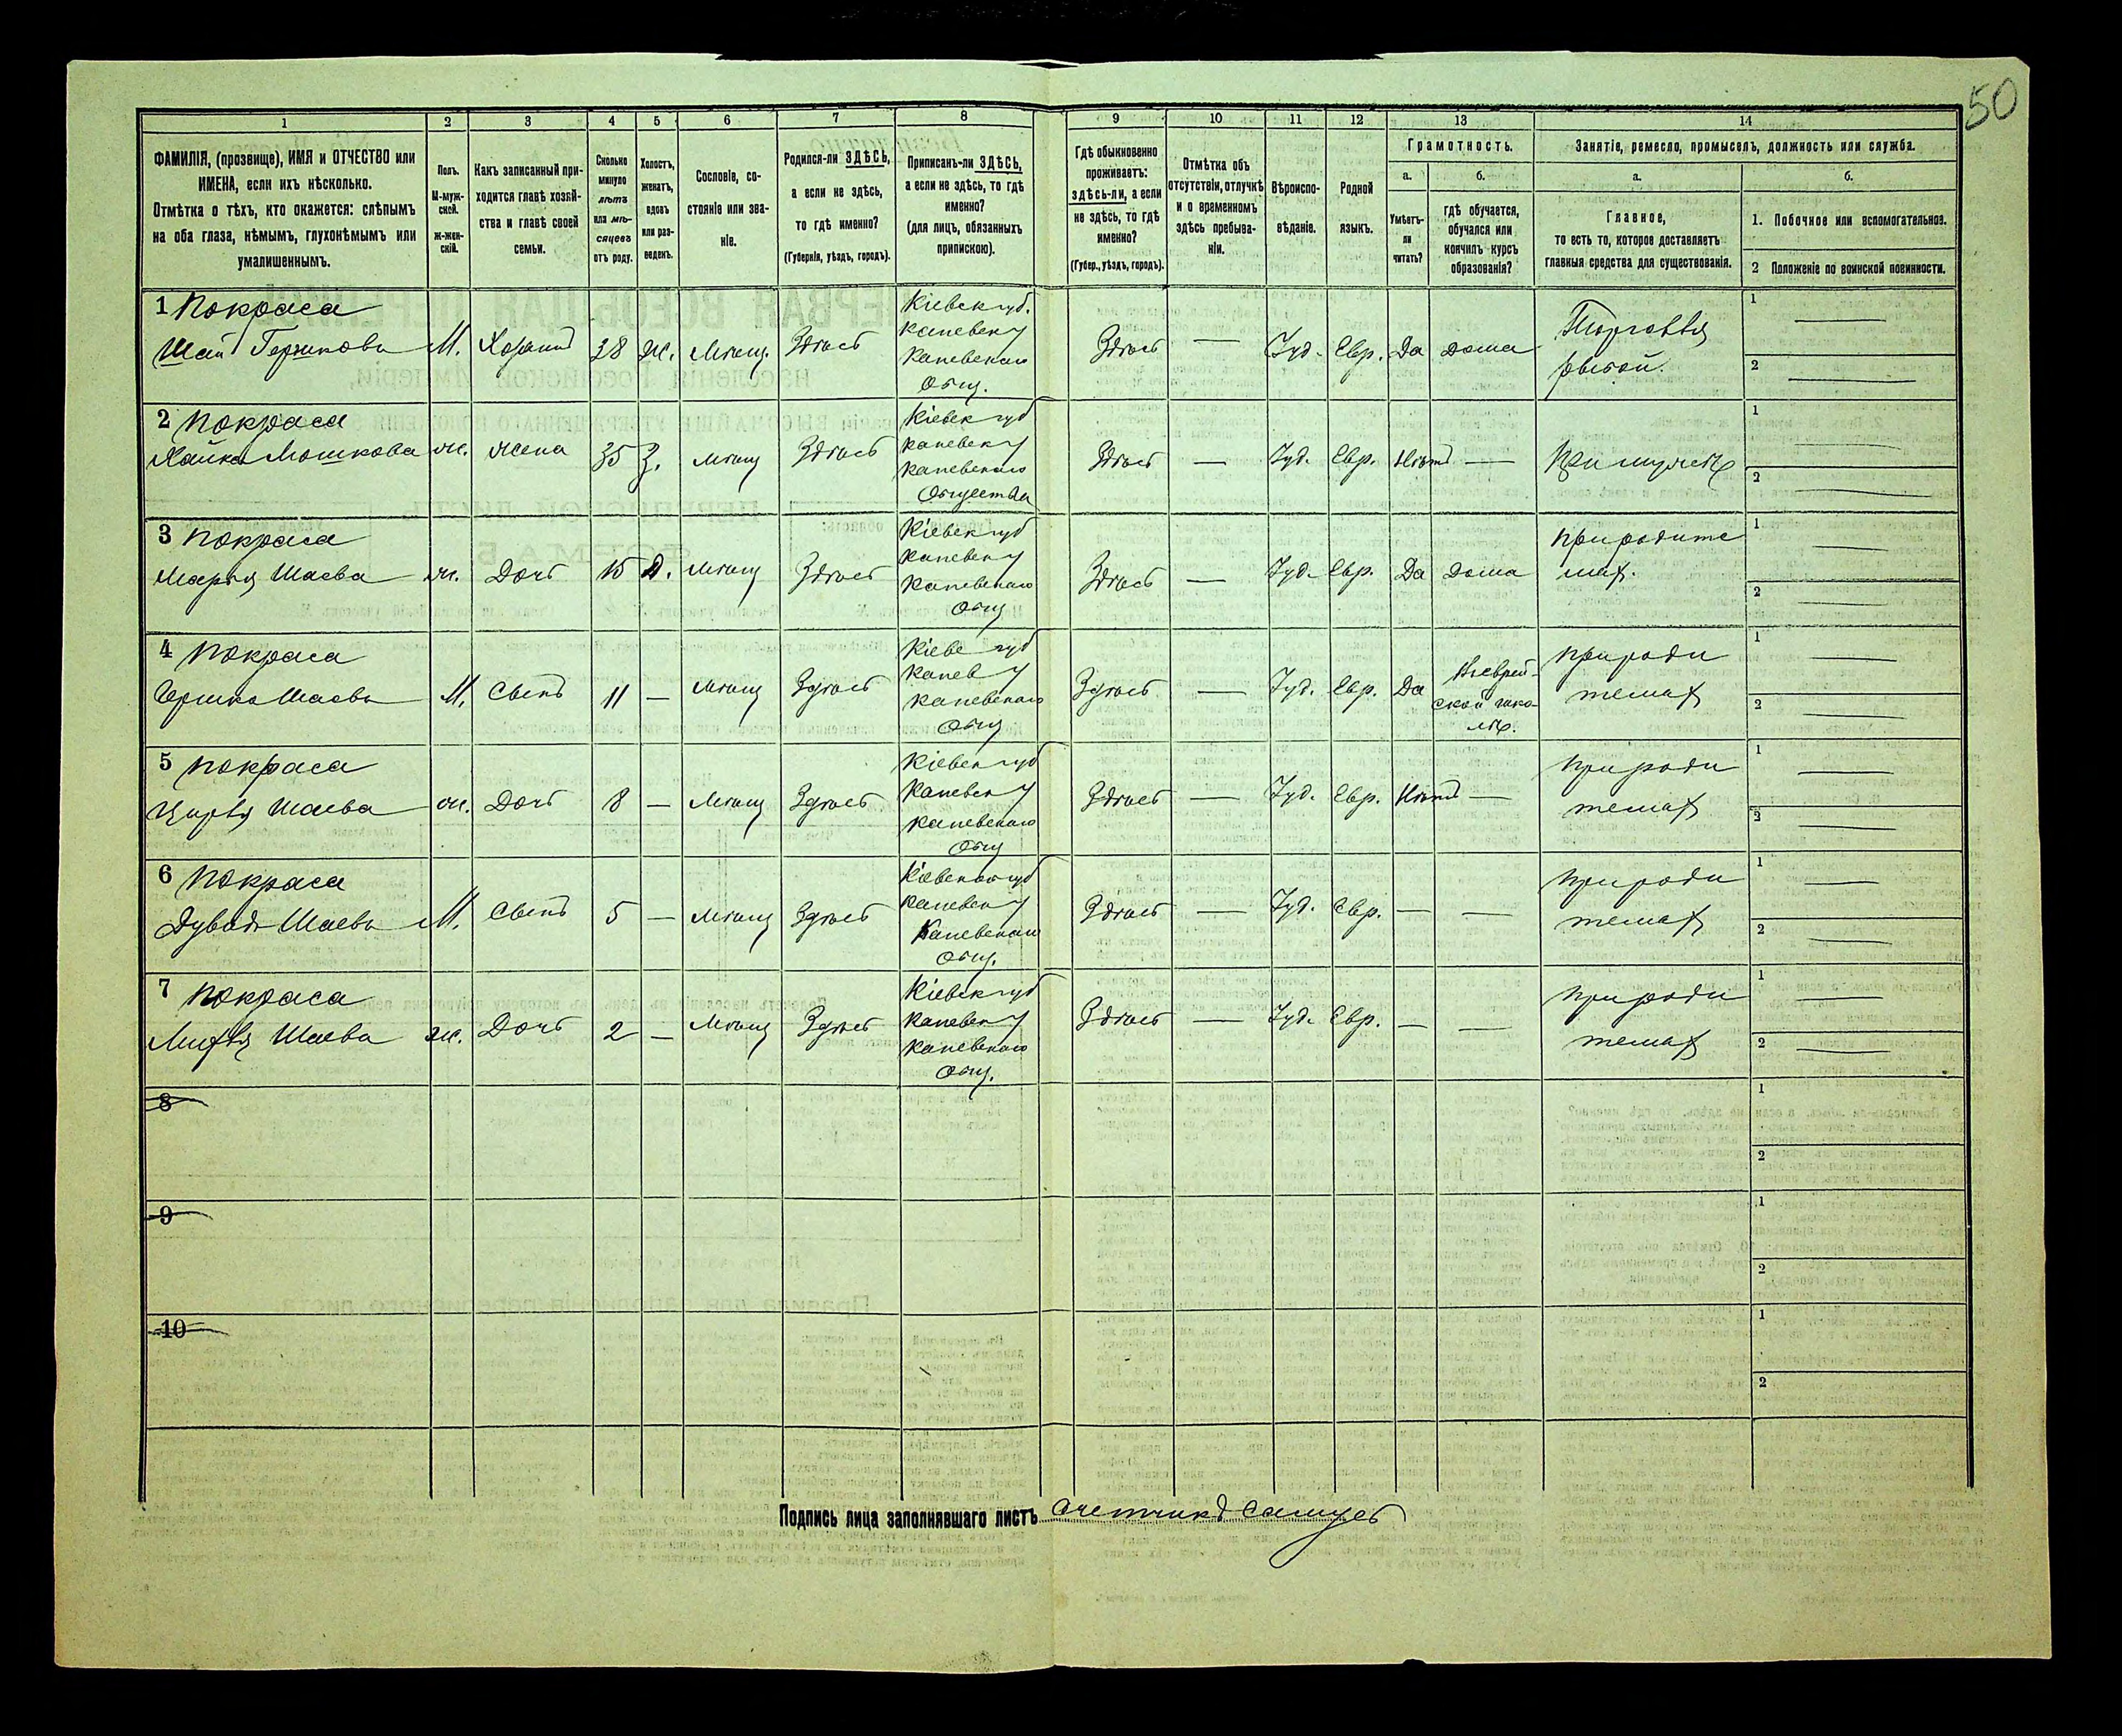 50
1 2 3 4 5 6 7 8 9 10 11 12 13 14
ФАМИЛІЯ, (прозвище), ИМЯ и ОТЧЕСТВО или
ИМЕНА, если ихъ нѣсколько.
Отмѣтка о тѣхъ, кто окажется: слѣпымъ
на оба глаза, нѣмымъ, глухонѣмымъ или
умалишеннымъ.
Полъ.
М-муж-
ской.
Ж-жен-
скій.
Какъ записанный при-
ходится главѣ хозяй-
ства и главѣ своей
семьи.
Сколько
минуло
лѣтъ
или мѣ-
сяцевъ
отъ роду.
Холостъ,
женатъ,
вдовъ
или раз-
веденъ.
Сословіе, со-
стояніе или зва-
ніе.
Родился-ли ЗДѢСЬ,
а если не здѣсь,
то гдѣ именно?
(Губернія, уѣздъ, городъ).
Приписанъ-ли ЗДѢСЬ,
а если не здѣсь, то гдѣ
именно?
(для лицъ, обязанныхъ
припискою).
Гдѣ обыкновенно
проживаетъ:
здѣсь-ли, а если
не здѣсь, то гдѣ
именно?
(Губер., уѣздъ, городъ).
Отмѣтка объ
отсутствіи, отлучкѣ
и о временномъ
здѣсь пребыва-
ніи.
Вѣроиспо-
вѣданіе.
Родной
языкъ.
Грамотность.
а.
Умѣетъ-
ли
читать?
б.
гдѣ обучается,
обучался или
кончилъ курсъ
образованія?
Занятіе, ремесло, промыселъ, должность или служба.
а.
Главное,
то есть то, которое доставляетъ
главныя средства для существованія.
б.
1. Побочное или вспомогательное.
2 Положеніе по воинской повинности.
1 Покраса
Шая Гершковъ М. Хозяинъ 38 Ж. Мѣщ. Здѣсь
Кіевск губ.
Каневск у
Каневскаго
Общ.
Здѣсь — Іуд. Евр. Да дома
Торговля
рыбой.
1
2
2 Покраса
Хайка Мошкова ж. жена 35 З. мѣщ Здѣсь
Кіевск губ
Каневск у
Каневскаго
Общества
Здѣсь — Іуд. Евр. Нѣтъ —
При мужѣ
1
2
3 Покраса
Марья Шаева ж. Дочь 15 Д. Мѣщ Здѣсь
Кіевск губ
Каневск у
Каневскаго
Общ
Здѣсь — Іуд. Евр. Да дома
При родите
лях.
1
2
4 Покраса
Гершко Шаевъ М. Сынъ 11 — Мѣщ Здѣсь
Кіевс губ
Канев у
Каневскаго
Общ
Здѣсь — Іуд. Евр. Да
В еврей-
ской шко-
лѣ.
При роди
телях
1
2
5 Покраса
Цирля Шаева ж. Дочь 8 — Мѣщ Здѣсь
Кіевск губ
Каневск у
Каневскаго
Общ
Здѣсь — Іуд. Евр. Нѣтъ —
При роди
телях
1
2
6 Покраса
Дувидъ Шаевъ М. Сынъ 5 — Мѣщ Здѣсь
Кіевской губ
Каневск у
Каневскаго
Общ.
Здѣсь — Іуд. Евр. — —
При роди
телях
1
2
7 Покраса
Шаева ж. Дочь 2 — Мѣщ Здѣсь
Кіевск губ
Каневск у
Каневскаго
Общ.
Здѣсь — Іуд. Евр. — —
При роди
телях
1
2
8
1
2
9
1
2
10
1
2
Подпись лица заполнявшаго листъ Счетчикъ